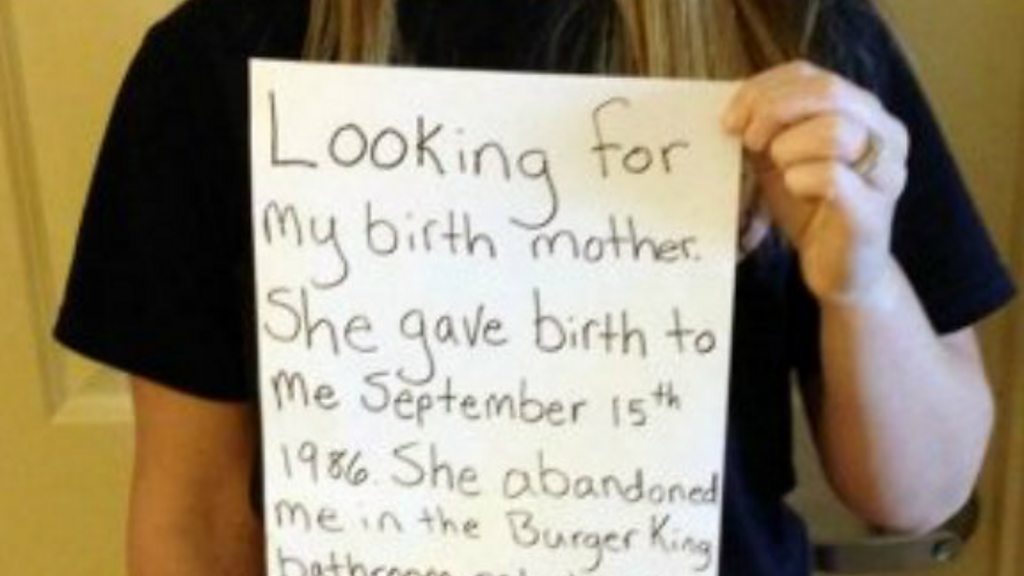 Looking for
my birth mother.
She gave birth to
me September 15th
1986. She abandoned
me in the Burger King
bathroom